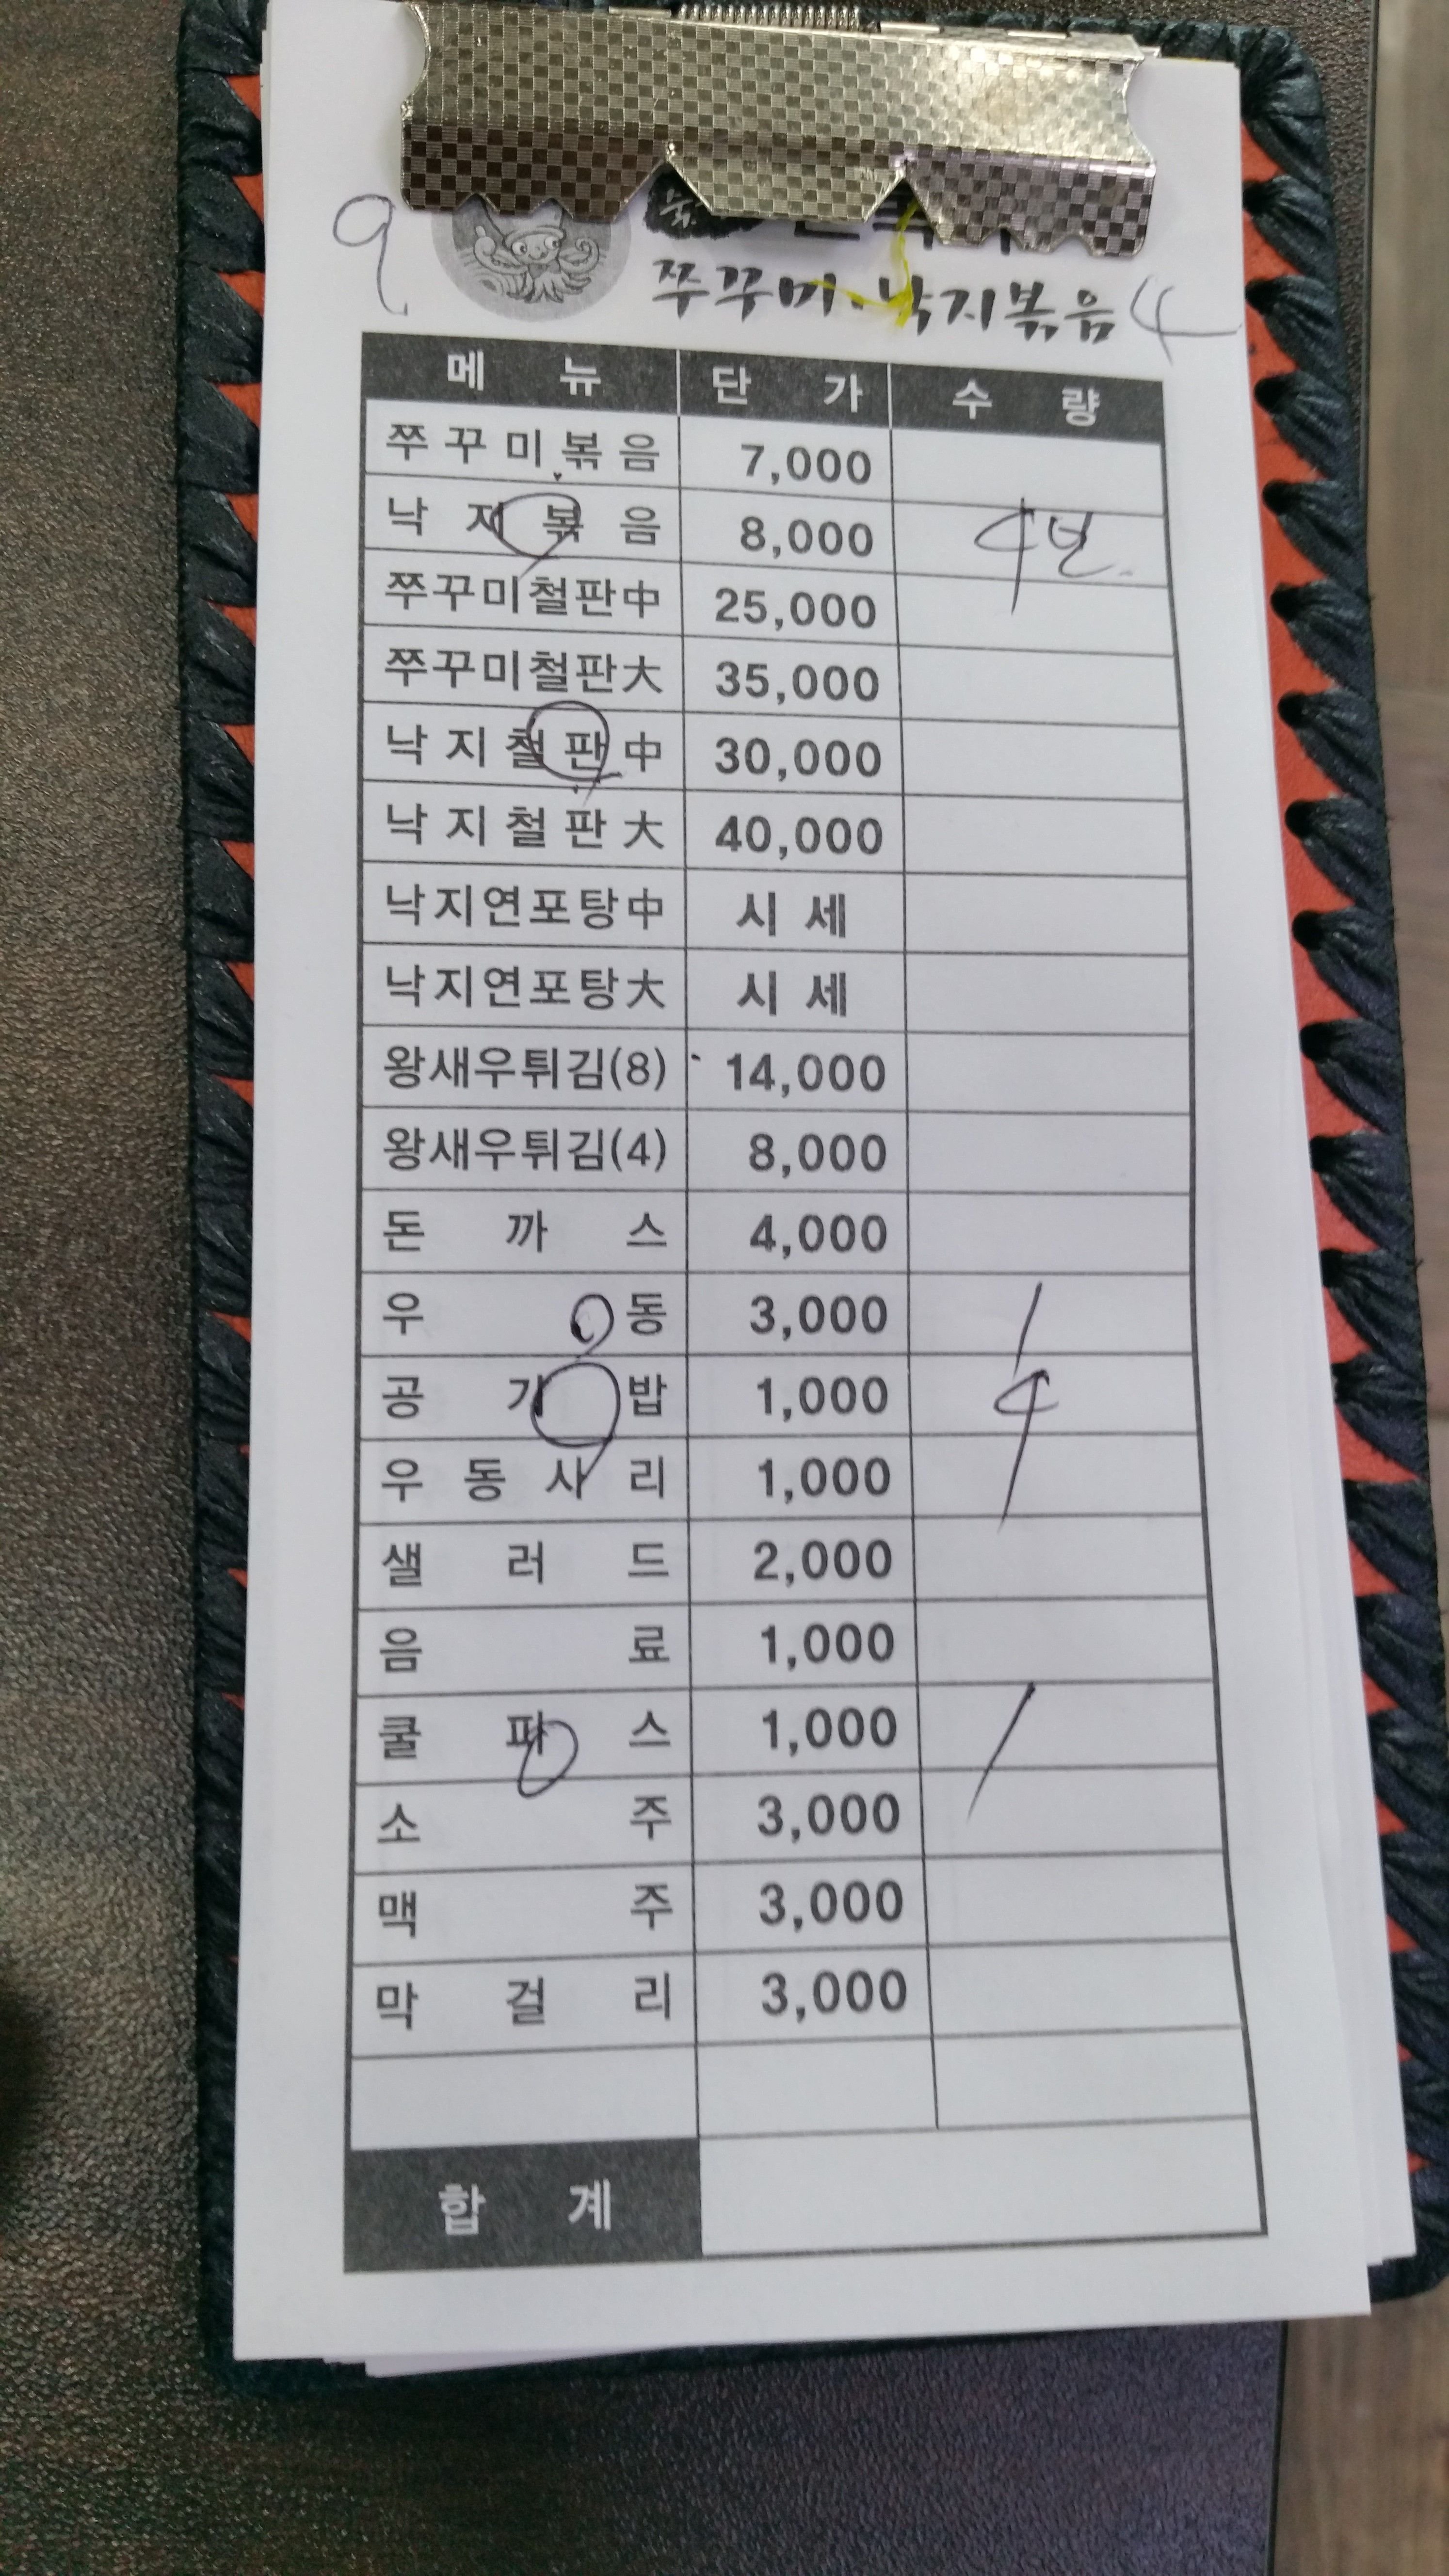 9
쭈꾸미·낙지볶음 4
메뉴 단가 수량
쭈꾸미볶음 7,000
낙지볶음 8,000 4번
쭈꾸미철판中 25,000
쭈꾸미철판大 35,000
낙지철판中 30,000
낙지철판大 40,000
낙지연포탕中 시세
낙지연포탕大 시세
왕새우튀김(8) 14,000
왕새우튀김(4) 8,000
돈까스 4,000
우동 3,000 1
공기밥 1,000 4
우동사리 1,000
샐러드 2,000
음료 1,000
쿨피스 1,000 1
소주 3,000
맥주 3,000
막걸리 3,000
합계